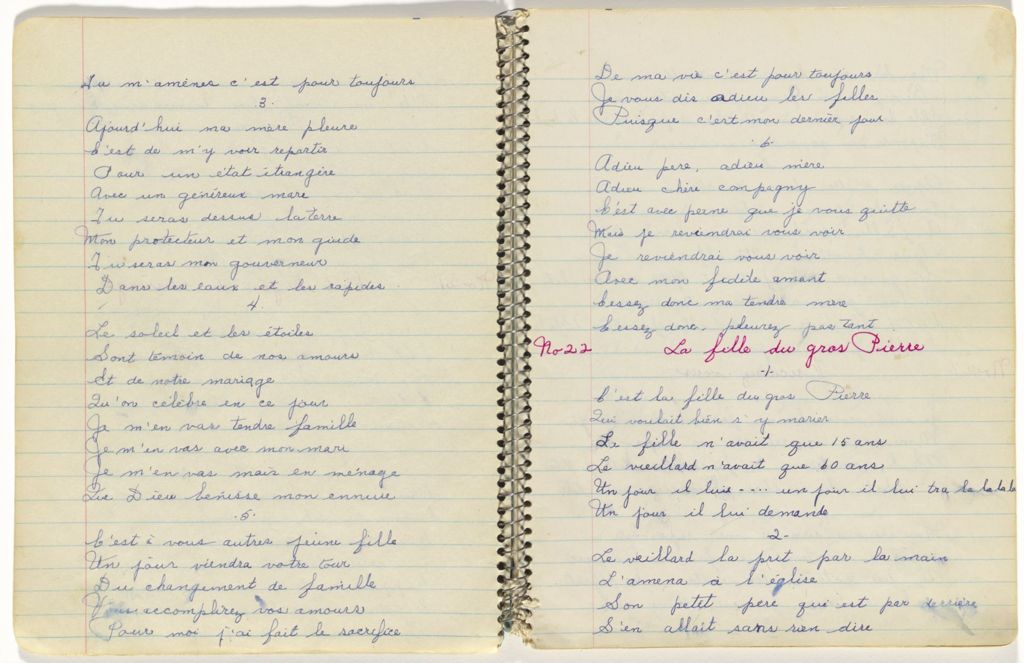 Tu m'amènes c'est pour toujours
3.
Ajourd'hui ma mère pleure
C'est de m'y voir repartir
Pour un état étrangère
Avec un généreux mare
Tu seras dessus la terre
Mon protecteur et mon guide
Tu seras mon gouverneur
Dans les eaux et les rapides.
4.
Le soleil et les étoiles
Sont témoin de nos amours
Et de notre mariage
Qu'on célèbre en ce jour
Je m'en vas tendre famille
Je m'en vas avec mon mari
Je m'en vas mais en ménage
Que Dieu bénisse mon ennuie
.5.
C'est à vous autres jeune fille
Un jour viendra votre tour
Du changement de famille
Vous accomplirez vos amours
Pour moi j'ai fait le sacrifice
De ma vie c'est pour toujours
Je vous dis adieu les filles
Puisque c'est mon dernier jour
.6.
Adieu père, adieu mère
Adieu chère compagny
C'est avec peine que je vous quitte
Mais je reviendrai vous voir
Je reviendrai vous voir
Avec mon fidèle amant
Cessez donc ma tendre mère
Cessez donc, pleurez pas tant.
No 22 La fille du gros Pierre
-1-
C'est la fille du gros Pierre
Qui voulait bien s'y marier
Le fille n'avait que 15 ans
Le vieillard n'avait que 60 ans
Un jour il lui - - - - un jour il lui tra la la la la
Un jour il lui demande
2-
Le veillard la prit par la main
L'amena à l'église
Son petit père qui est par derrière
S'en allait sans rien dire